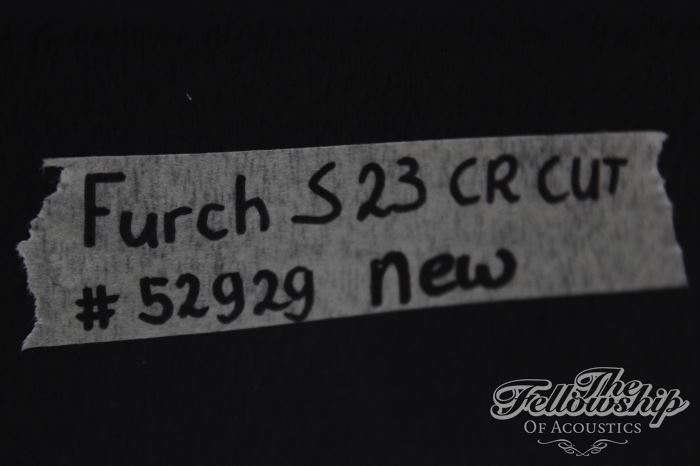 Furch S23 CR CUT
#52929 new
The
Fellowship
OF ACOUSTICS